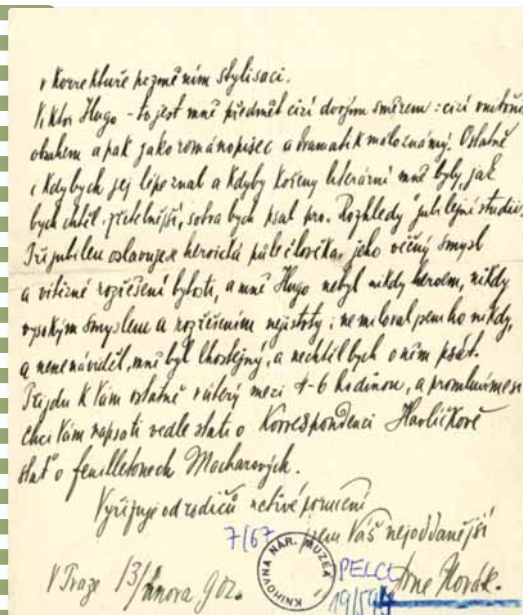 v korrektuře nezměním stylisaci.
Viktor Hugo – to jest mně předmět cizí dvojím směrem: cizí vnitřním
obsahem a pak jako románopisec a dramatik málo známý. Ostatně
i kdybych jej lépe znal a kdyby kořeny literární mně byly, jak
bych chtěl, zřetelnější, sotva bych psal pro „Rozhledy" jubilejní studii.
Při jubileu oslavuje se heroická půle člověka, jeho věčný smysl
a vítězné rozřešení bytosti, a mně Hugo nebyl nikdy heroem, nikdy
vysokým smyslem a rozřešením nejistoty; nemiloval jsem ho nikdy,
a nenenáviděl, mně byl lhostejný, a nechtěl bych o něm psát.
Přijdu k Vám ostatně v úterý mezi 4-6 hodinou, a promluvíme si
chci Vám napsati vedle stati o Korrespondenci Havlíčkově
stať o feuilletonech Macharových.
Vyřizuje od rodičů uctivé poručení
jsem Váš nejoddanější
7/67
Arne Novák.
V Praze 13/února 902.
KNIHOVNA NÁR. MUZEA
PELCL